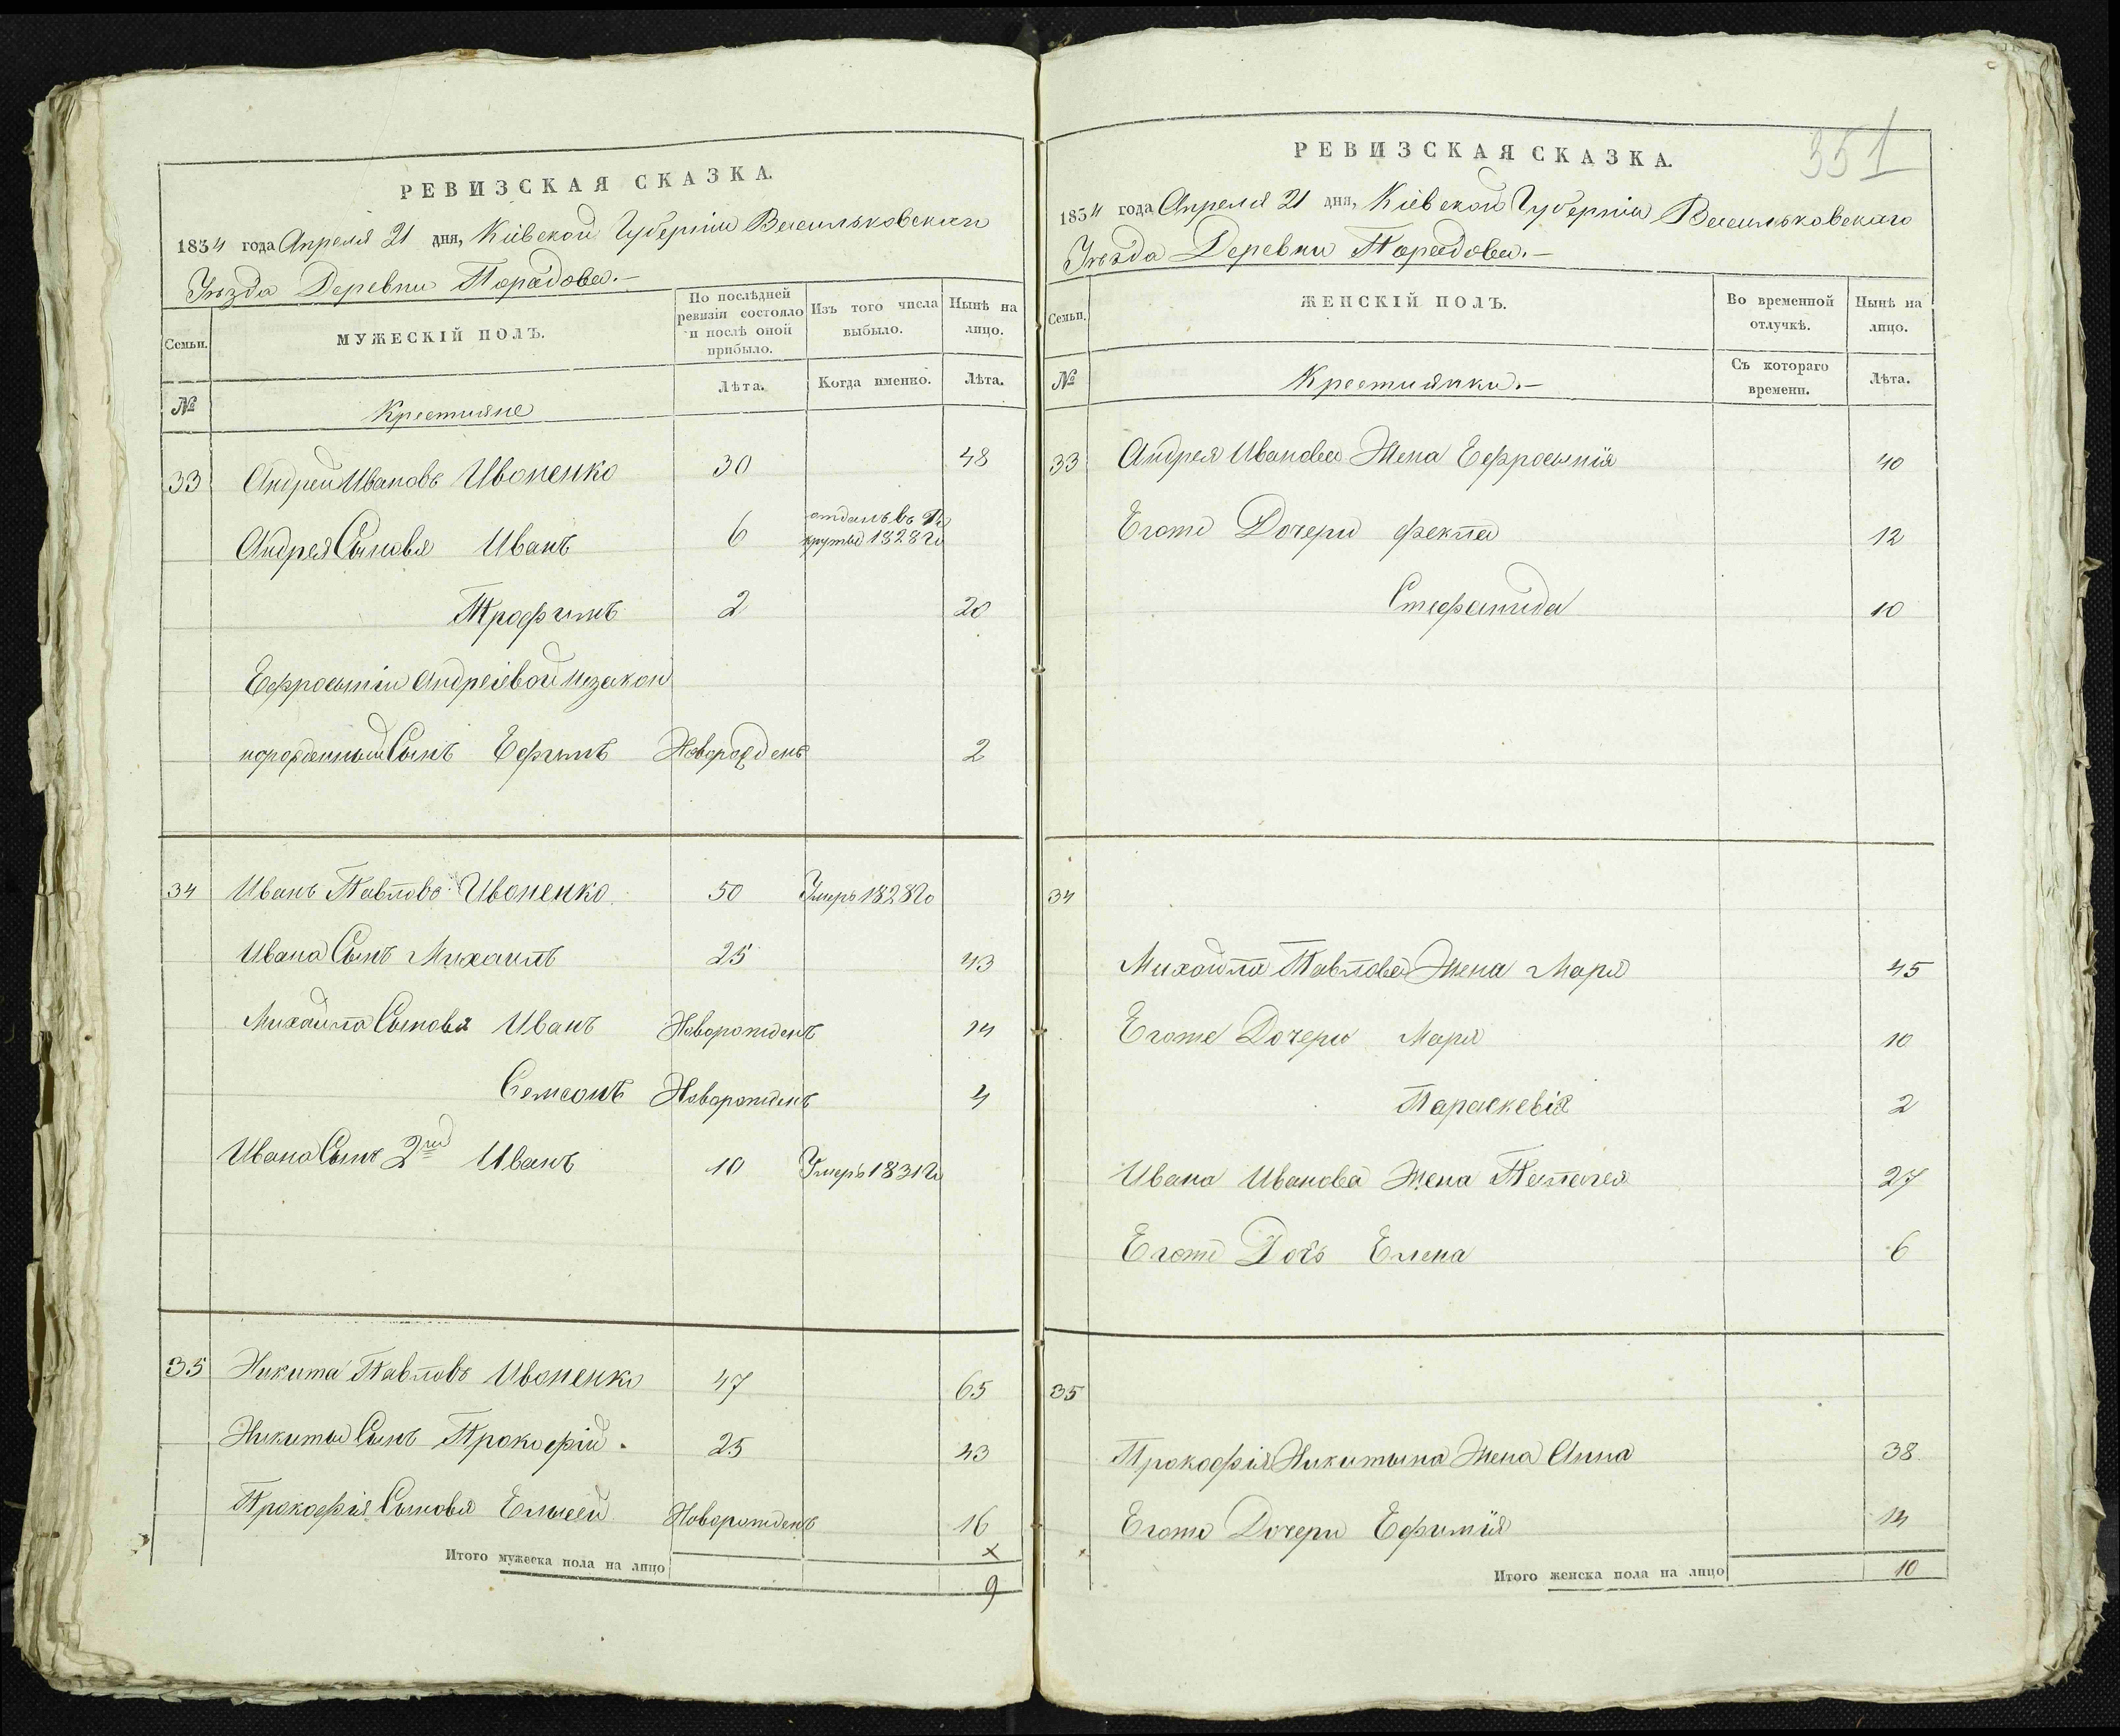 РЕВИЗСКАЯ СКАЗКА.
1834 года Апреля 21 дня, Кіевской Губерніи Васильковскаго
Уезда Деревни Порадова.—
Семьи.
МУЖЕСКІЙ ПОЛЪ.
По послѣдней ревизіи состояло и послѣ оной прибыло.
Изъ того числа выбыло.
Нынѣ на лицо.
№
Крестияне
Лѣта.
Когда именно.
Лѣта.
33 Андрей Ивановъ Ивоненко 30 48
Андрея Сыновя Иванъ 6 отданъ въ Ре
круты 1828 го
Трофимъ 2 20
Ефросыніи Андреівой незакон
норожденный Сынъ Ефимъ Новорожденъ 2
34 Иванъ Павловъ Ивоненко 50 Умеръ 1828 го
Ивана Сынъ Михаилъ 25 43
Михаила Сыновя Иванъ Новорожденъ 14
Семсонъ Новорожденъ 4
Ивана Сынъ 2ий Иванъ 10 Умеръ 1831 го
35 Никита Павловъ Ивоненко 47 65
Никиты Сынъ Прокофій. 25 43
Прокофія Сыновя Елысей Новорожденъ 16
Итого мужеска пола на лицо
9
351
РЕВИЗСКАЯ СКАЗКА.
1834 года Апреля 21 дня, Кіевской Губерніи Васильковскаго
Уезда Деревни Порадова.—
Семьи.
ЖЕНСКІЙ ПОЛЪ.
Во временной отлучкѣ.
Нынѣ на лицо.
№
Крестиянки.—
Съ котораго времени.
Лѣта.
33 Андрея Иванова Жена Ефросынія 40
Егоже Дочери Фекла 12
Стефанида 10
34
Михайла Павлова Жена Маря 45
Егоже Дочери Маря 10
Параскевія 2
Ивана Иванова Жена Пелагея 27
Егоже Дочь Елена 6
35
Прокофія Никитына Жена Анна 38
Егоже Дочери Ефимія 14
Итого женска пола на лицо 10